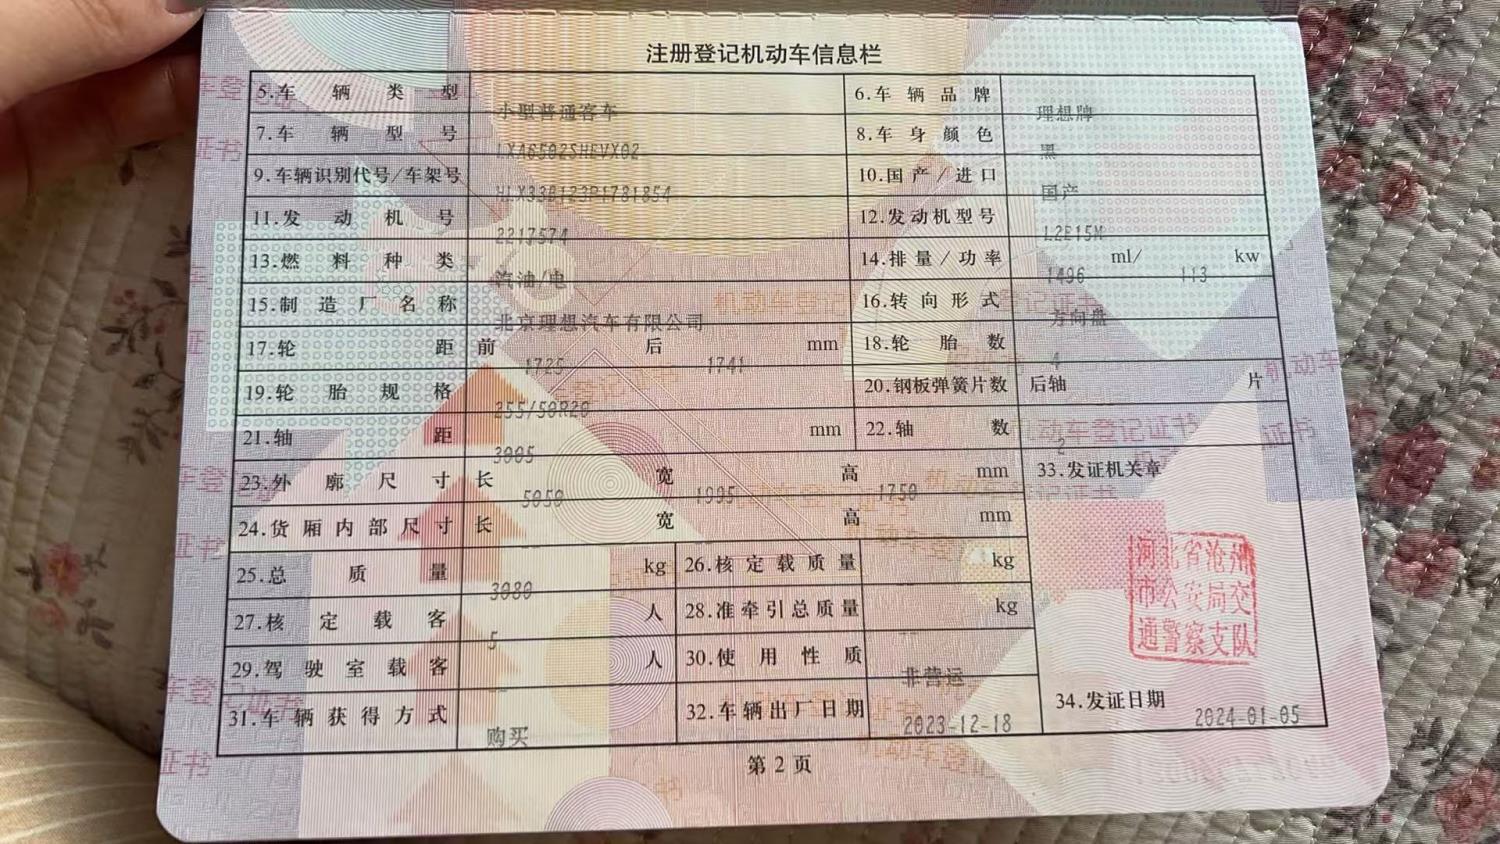 注册登记机动车信息栏
5.车辆类型 小型普通客车 6.车辆品牌 理想牌
7.车辆型号 LXA6502SHEVX02 8.车身颜色 黑
9.车辆识别代号/车架号 10.国产/进口 国产
11.发动机号 2217574 12.发动机型号 L2E15M
13.燃料种类 汽油/电 14.排量/功率 1496 ml/ 113 kw
15.制造厂名称 北京理想汽车有限公司 16.转向形式 方向盘
17.轮距 前 1725 后 1741 mm 18.轮胎数 4
19.轮胎规格 255/50R20 20.钢板弹簧片数 后轴 -- 片
21.轴距 3005 mm 22.轴数 2
23.外廓尺寸 长 5050 宽 1995 高 1750 mm 33.发证机关章
24.货厢内部尺寸 长 -- 宽 -- 高 -- mm
25.总质量 3080 kg 26.核定载质量 -- kg
27.核定载客 5 人 28.准牵引总质量 -- kg
29.驾驶室载客 -- 人 30.使用性质 非营运
31.车辆获得方式 购买 32.车辆出厂日期 2023-12-18 34.发证日期 2024-01-05
河北省沧州
市公安局交
通警察支队
第2页